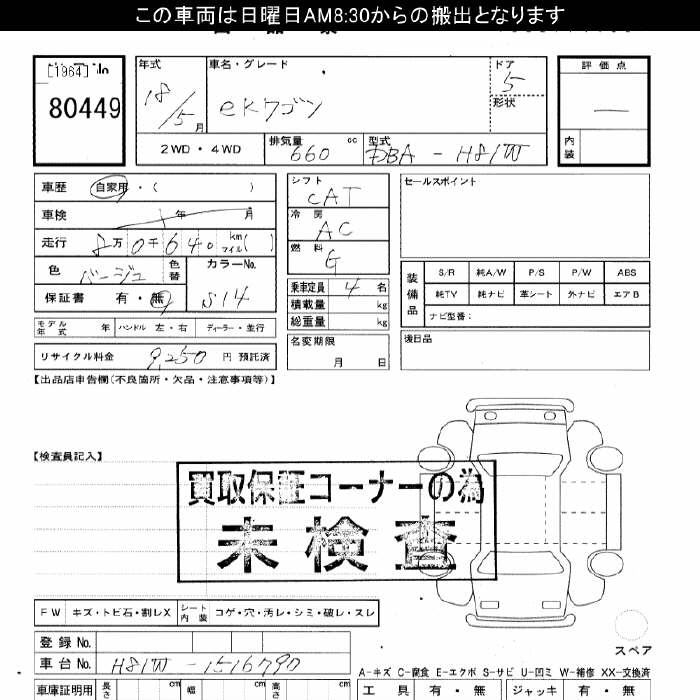 この車両は日曜日AM8:30からの搬出となります
[1964] No
80449
年式
18/5月
車名・グレード
eKワゴン
ドア
5
形状
評価点
内装
2WD・4WD
排気量
660 cc
型式
DBA-H81W
車歴
自家用・( )
車検
年 月
走行
8万0千640 km マイル( )
色
ベージュ
色替
カラーNo.
S14
保証書
有・無
モデル年式 年
ハンドル 左・右
ディーラー・並行
リサイクル料金
9,250円 預託済
シフト
CAT
冷房
AC
燃料
G
乗車定員 4名
積載量 kg
総重量 kg
名変期限
月 日
セールスポイント
装備品
S/R 純A/W P/S P/W ABS
純TV 純ナビ 革シート 外ナビ エアB
ナビ型番:
後日品
【出品店申告欄(不良箇所・欠品・注意事項等)】
【検査員記入】
買取保証コーナーの為
未検査
FW キズ・トビ石・割レX
シート内装 コゲ・穴・汚レ・シミ・破レ・スレ
スペア
登録No.
車台No. H81W-1516790
A-キズ C-腐食 E-エクボ S-サビ U-凹ミ W-補修 XX-交換済
車庫証明用 長さ cm 幅 cm 高さ cm
工具 有・無 ジャッキ 有・無